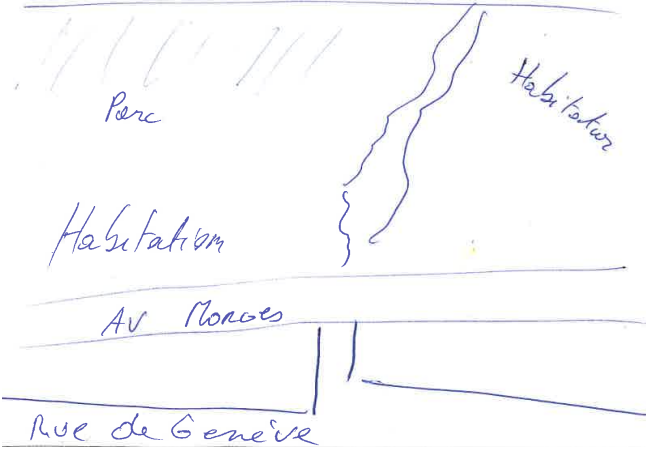 Parc
Habitation
Habitation
Av Morges
Rue de Genève